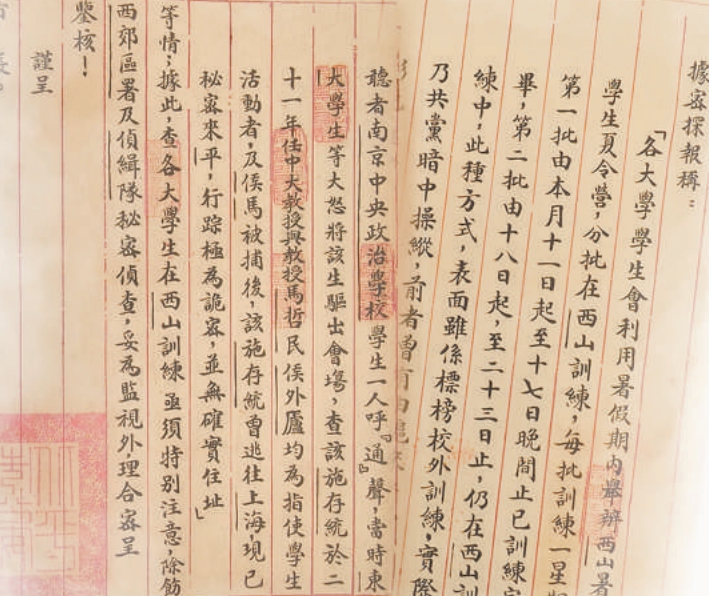 據密探報稱：
「各大學學生會利用暑假期內舉辦西山暑
學生夏令營，分批在西山訓練，每批訓練一星期
第一批由本月十一日起至十七日晚間止已訓練完
畢，第二批由十八日起，至二十三日止，仍在西山訓
練中，此種方式，表面雖係標榜校外訓練，實際
乃共黨暗中操縱，前者曾有由
聽者南京中央政治學校學生一人呼『通』聲，當時東
大學生等大怒將該生驅出會場，查該施存統於二
十一年任中大教授與教授馬哲民侯外廬均為指使學生
活動者，及侯馬被捕後，該施存統曾逃往上海，現已
秘密來平，行踪極為詭密，並無確實住址」
等情；據此，查各大學生在西山訓練亟須特別注意，除飭
西郊區署及偵緝隊秘密偵查，妥為監視外，理合密呈
鑒核！
謹呈
長。